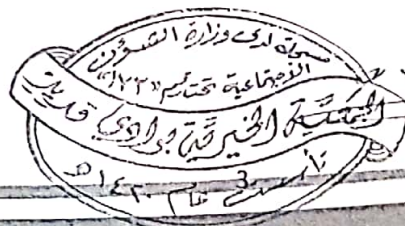 مسجلة لدى وزارة الشؤون
الاجتماعية تحت رقم «١٧٣»
الجمعية الخيرية بوادي قديد
تأسست عام ١٤٢٠هـ